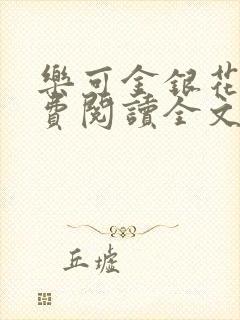 樂可金銀花
費閱讀全文
丘墟